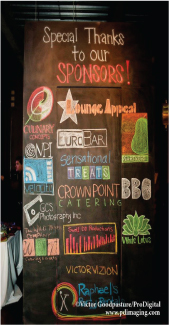 Special Thanks
to our
SPONSORS!
Lounge Appeal
CULINARY
CONCEPTS
EUROBAR
MPI
Sensational
TREATS
CROWN POINT
CATERING
BBQ
GCS
Photography Inc
White Lotus
VICTORVIZION
RAPHAEL'S
©Victor Goodpasture/ProDigital
www.pdimaging.com